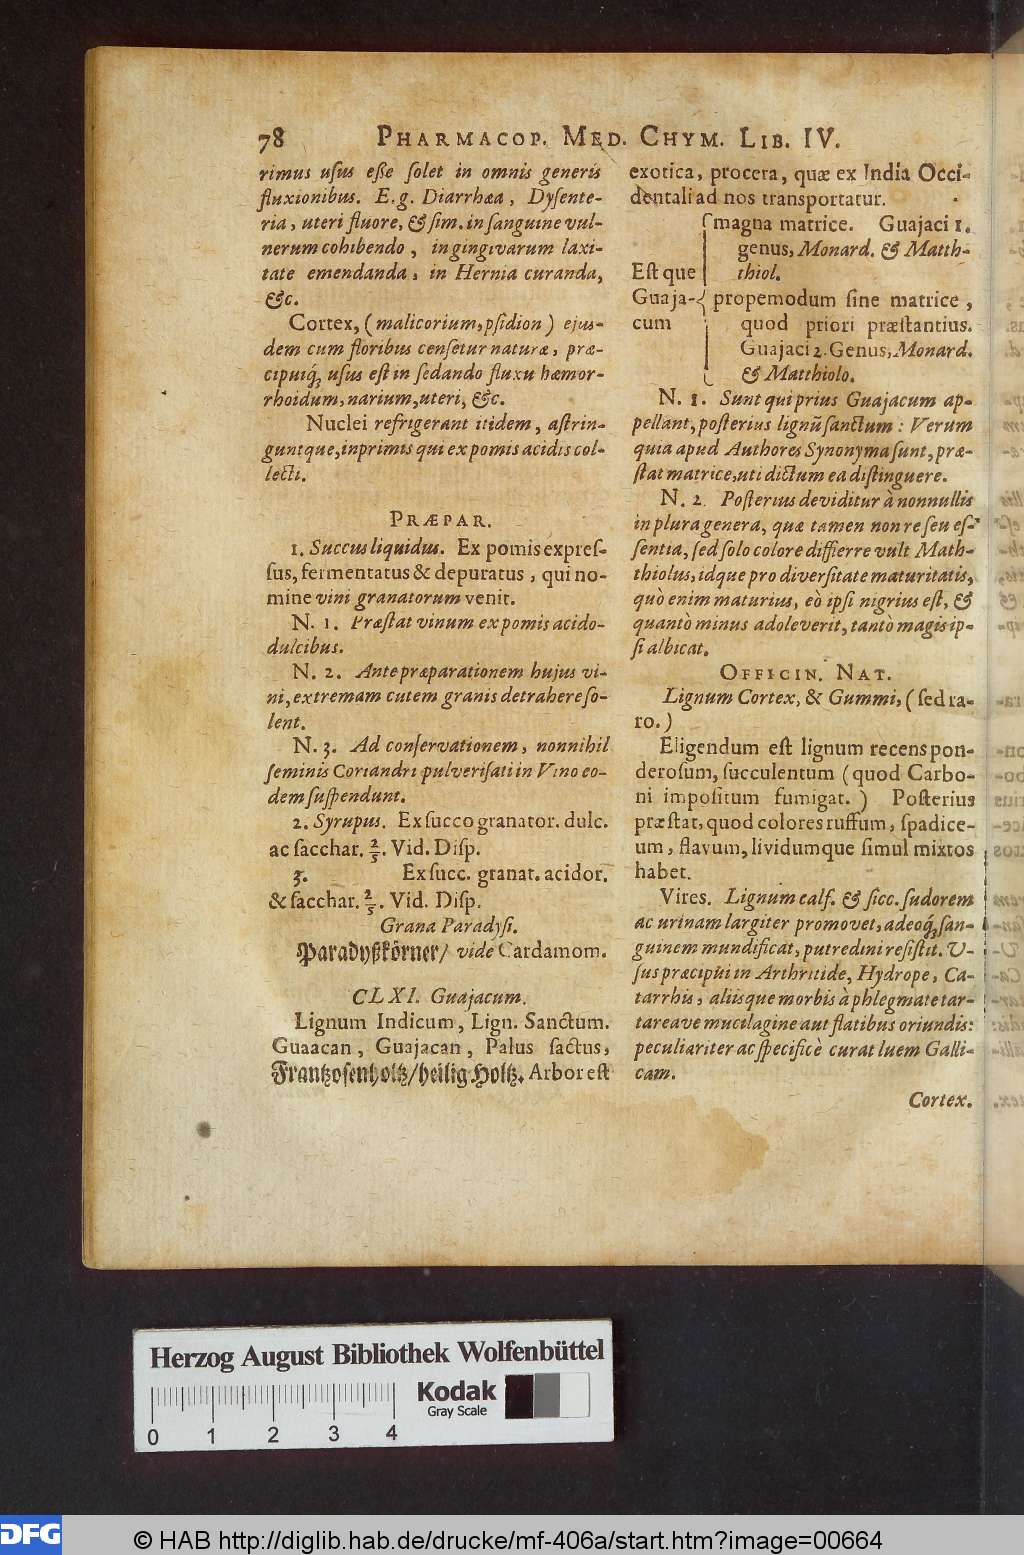 78 PHARMACOP. MED. CHYM. LIB. IV.
rimus uſus eſſe ſolet in omnis generis
fluxionibus. E. g. Diarrhæa, Dyſente-
ria, uteri fluore, & ſim. in ſanguine vul-
nerum cohibendo, in gingivarum laxi-
tate emendanda, in Hernia curanda,
&c.
Cortex, (malicorium, pſidion) ejus-
dem cum floribus cenſetur naturæ, præ-
cipuiq́; uſus eſt in ſedando fluxu hæmor-
rhoidum, narium, uteri, &c.
Nuclei refrigerant itidem, aſtrin-
guntque, inprimis qui ex pomis acidis col-
lecti.
PRÆPAR.
1. Succus liquidus. Ex pomis expreſ-
ſus, fermentatus & depuratus, qui no-
mine vini granatorum venit.
N. 1. Præſtat vinum ex pomis acido-
dulcibus.
N. 2. Ante præparationem hujus vi-
ni, extremam cutem granis detrahere ſo-
lent.
N. 3. Ad conſervationem, nonnihil
ſeminis Coriandri pulveriſati in Vino eo-
dem ſuſpendunt.
2. Syrupus. Ex ſucco granator. dulc.
ac ſacchar. 2/5. Vid. Diſp.
3. Ex ſucc. granat. acidor.
& ſacchar. 2/5. Vid. Diſp.
Grana Paradyſi.
Paradyßkörner/ vide Cardamom.
CLXI. Guajacum.
Lignum Indicum, Lign. Sanctum.
Guaacan, Guajacan, Palus ſactus,
Frantzoſenholtz/heilig Holtz. Arbor eſt
exotica, procera, quæ ex India Occi-
dentali ad nos transportatur.
magna matrice. Guajaci 1.
genus, Monard. & Matth-
Eſt que thiol.
Guaja- propemodum ſine matrice,
cum quod priori præſtantius.
Guajaci 2. Genus, Monard.
& Matthiolo.
N. 1. Sunt qui prius Guajacum ap-
pellant, poſterius lignũ ſanctum: Verum
quia apud Authores Synonyma ſunt, præ-
ſtat matrice, uti dictum ea diſtinguere.
N. 2. Poſterius deviditur à nonnullis
in plura genera, quæ tamen non re ſeu eſ-
ſentia, ſed ſolo colore differre vult Math-
thiolus, idque pro diverſitate maturitatis,
quò enim maturius, eò ipſi nigrius eſt, &
quantò minus adoleverit, tantò magis ip-
ſi albicat.
OFFICIN. NAT.
Lignum Cortex, & Gummi, (ſed ra-
ro.)
Eligendum eſt lignum recens pon-
deroſum, ſucculentum (quod Carbo-
ni impoſitum fumigat.) Poſterius
præſtat, quod colores ruffum, ſpadice-
um, flavum, lividumque ſimul mixtos
habet.
Vires. Lignum calf. & ſicc. ſudorem
ac urinam largiter promovet, adeoq́; ſan-
guinem mundificat, putredini reſiſtit. U-
ſus præcipui in Arthritide, Hydrope, Ca-
tarrhis, aliisque morbis à phlegmate tar-
tareave mucilagine aut flatibus oriundis:
peculiariter ac ſpecificè curat luem Galli-
cam.
Cortex.
Herzog August Bibliothek Wolfenbüttel
0 1 2 3 4
Kodak
Gray Scale
DFG
© HAB http://diglib.hab.de/drucke/mf-406a/start.htm?image=00664